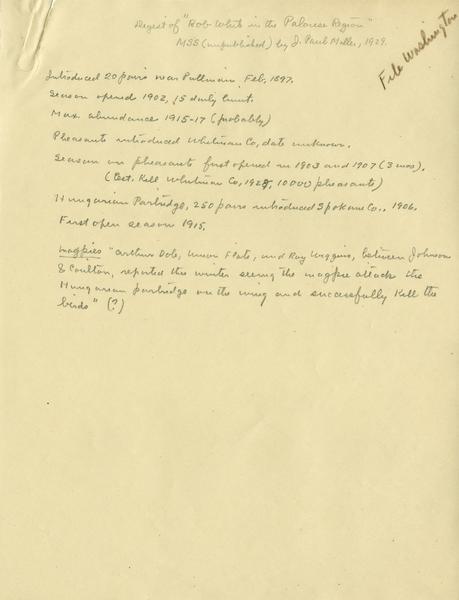 Digest of "Bob White in the Palouse Region"
MSS (unpublished) by J. Paul Miller, 1929.
File Washington
Introduced 20 pairs near Pullman Feb, 1897.
Season opened 1902, 15 daily limit.
Max. abundance 1915-17 (probably)
Pheasants introduced Whitman Co, date unknown.
Season on pheasants first opened in 1903 and 1907 (3 mos).
(Est. Kill Whitman Co, 1928, 10000 pheasants)
Hungarian Partridge, 250 pairs introduced Spokane Co., 1906.
First open season 1915.
Magpies "Arthur Dob, Union Flats, and Ray Wiggins, between Johnson
& Coulton, reported this winter seeing the magpie attack the
Hungarian partridge on the wing and successfully kill the
birds" (?)